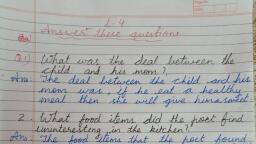 L-4
Answer these questions
Q.1) What was the deal between the
child and his mom?
Ans. The deal between the child and his
mom was, if he eat a healthy
meal then she will give him a sweet
2. What food items did the poet find
uninteresting in the kitchen?
Ans. The food items that the poet found